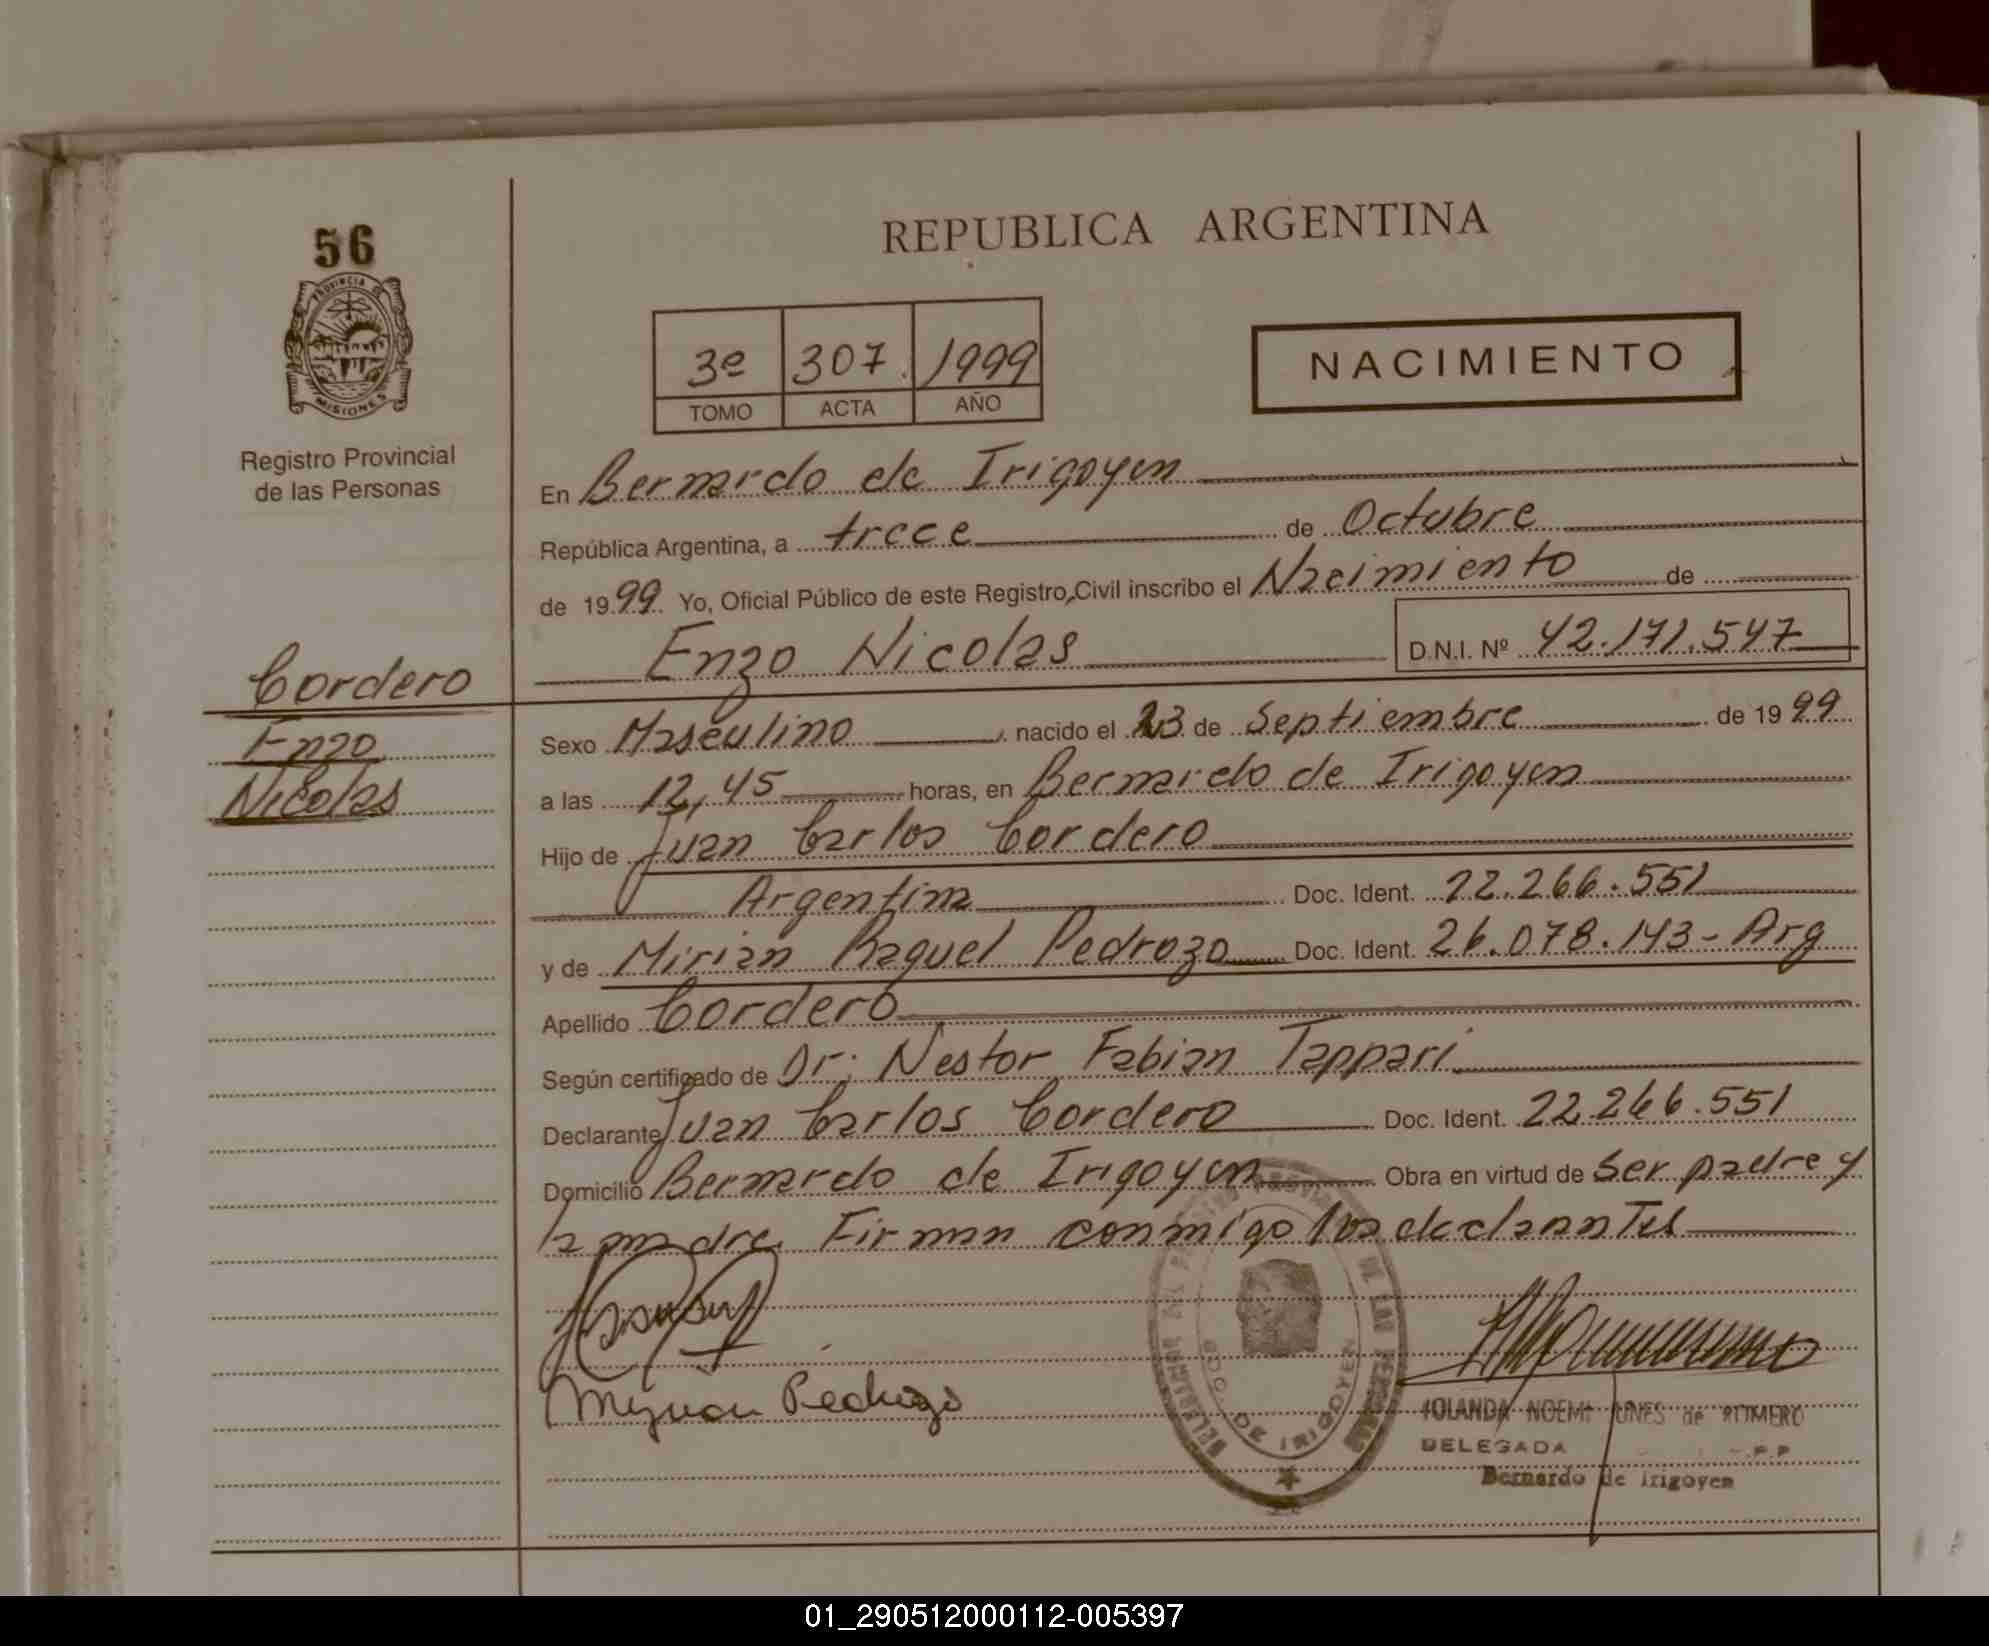 REPUBLICA ARGENTINA
56
PROVINCIA DE
MISIONES
Registro Provincial
de las Personas
3e 307. 1999
TOMO ACTA AÑO
NACIMIENTO
En Bernardo de Irigoyen
República Argentina, a trece de Octubre
de 1999. Yo, Oficial Público de este Registro Civil inscribo el Nacimiento de
Enzo Nicolas D.N.I. Nº 42.171.547
Cordero
Enzo
Nicolas
Sexo Masculino, nacido el 23 de Septiembre de 1999
a las 12,45 horas, en Bernardo de Irigoyen
Hijo de Juan Carlos Cordero
Argentina Doc. Ident. 22.266.551
y de Mirian Raquel Pedrozo Doc. Ident. 26.078.143 - Arg
Apellido Cordero
Según certificado de Dr: Nestor Fabian Tappari
Declarante Juan Carlos Cordero Doc. Ident. 22.266.551
Domicilio Bernardo de Irigoyen Obra en virtud de ser padre y
la madre. Firman conmigo los declarantes
Pedrozo
DE LAS
BDO. DE IRIGOYEN
NOEMI de ROMERO
DELEGADA
Bernardo de Irigoyen
01_290512000112-005397